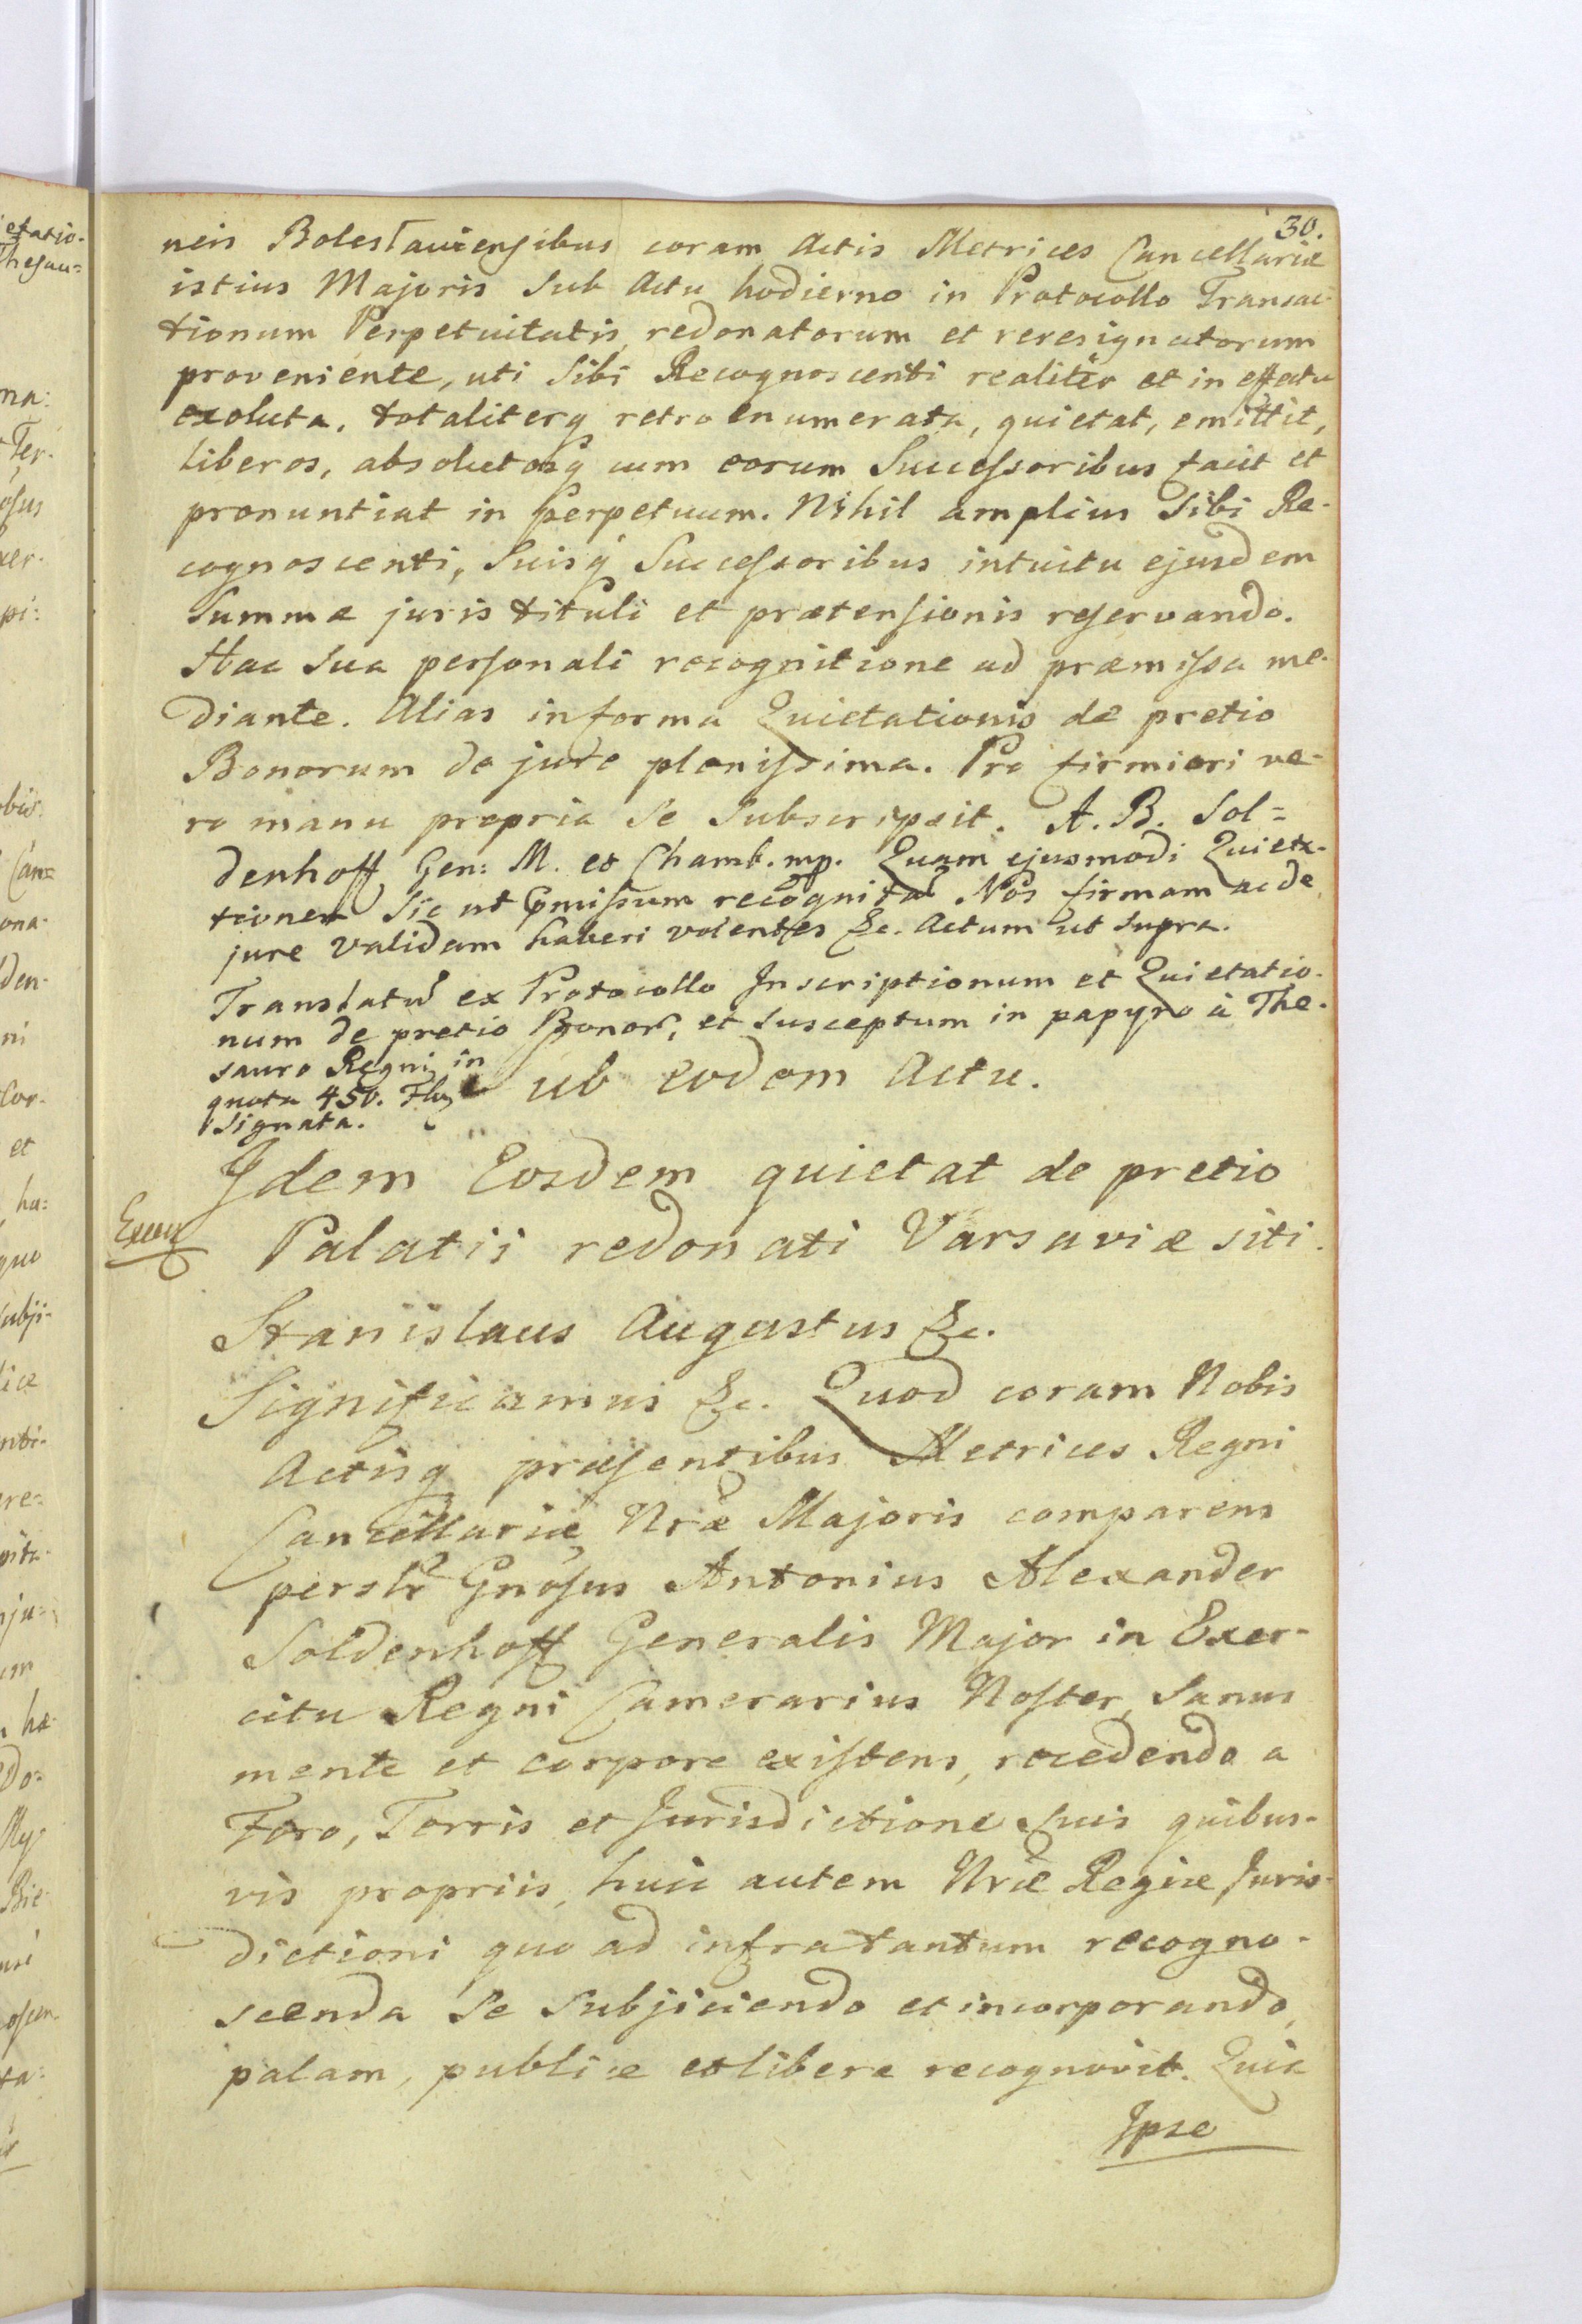 30.
neis Boleslaviensibus coram Actis Metrices Cancellariæ
istius Majoris Sub Actu hodierno in Protocollo Transac-
tionum Perpetuitatis, redonatorum et reresignatorum
proveniente, uti Sibi Recognoscenti realiter et in effectu
exoluta, totaliterq retro enumerata, quietat, emittit,
liberos, absolutosq cum eorum Successoribus facit et
pronuntiat in perpetuum. Nihil amplius Sibi Re-
cognoscenti, Suisq Successoribus intuitu ejusdem
Summæ juris tituli et prætensionis reservando.
Hac Sua personali recognitione ad præmissa me-
diante. Alias in forma Quietationis de pretio
Bonorum de jure plenissima. Pro firmiori ve-
ro manu propria Se Subscripsit. A. B. Sol=
denhoff Gen: M. et Chamb. mp. Quam ejusmodi Quieta-
tionem Sic ut pmissum recognitã Nos firmam ac de
jure validam haberi volentes &c. Actum ut Supra.
Translatũ ex Protocollo Inscriptionum et Quietatio-
num de pretio Bonor, et Susceptum in papyro à The-
sauro Regni in
quota 450. Flor
Signata.
Sub eodem Actu.
Idem Eosdem quietat de pretio
Palatii redonati Varsaviæ siti.
Stanislaus Augustus &c.
Significamus &c. Quod coram Nobis
Actisq præsentibus Metrices Regni
Cancellariæ Nræ Majoris comparens
personlr Gnosus Antonius Alexander
Soldenhoff Generalis Major in Exer-
citu Regni Camerarius Noster, Sanus
mente et corpore existens, recedendo a
Foro, Terris et Jurisdictione Suis quibus-
vis propriis, huic autem Nræ Regiæ Juris-
dictioni quo ad infra tantum recogno-
scenda Se Subjiciendo et incorporando,
palam, publice et libere recognovit. Quia
Ipse